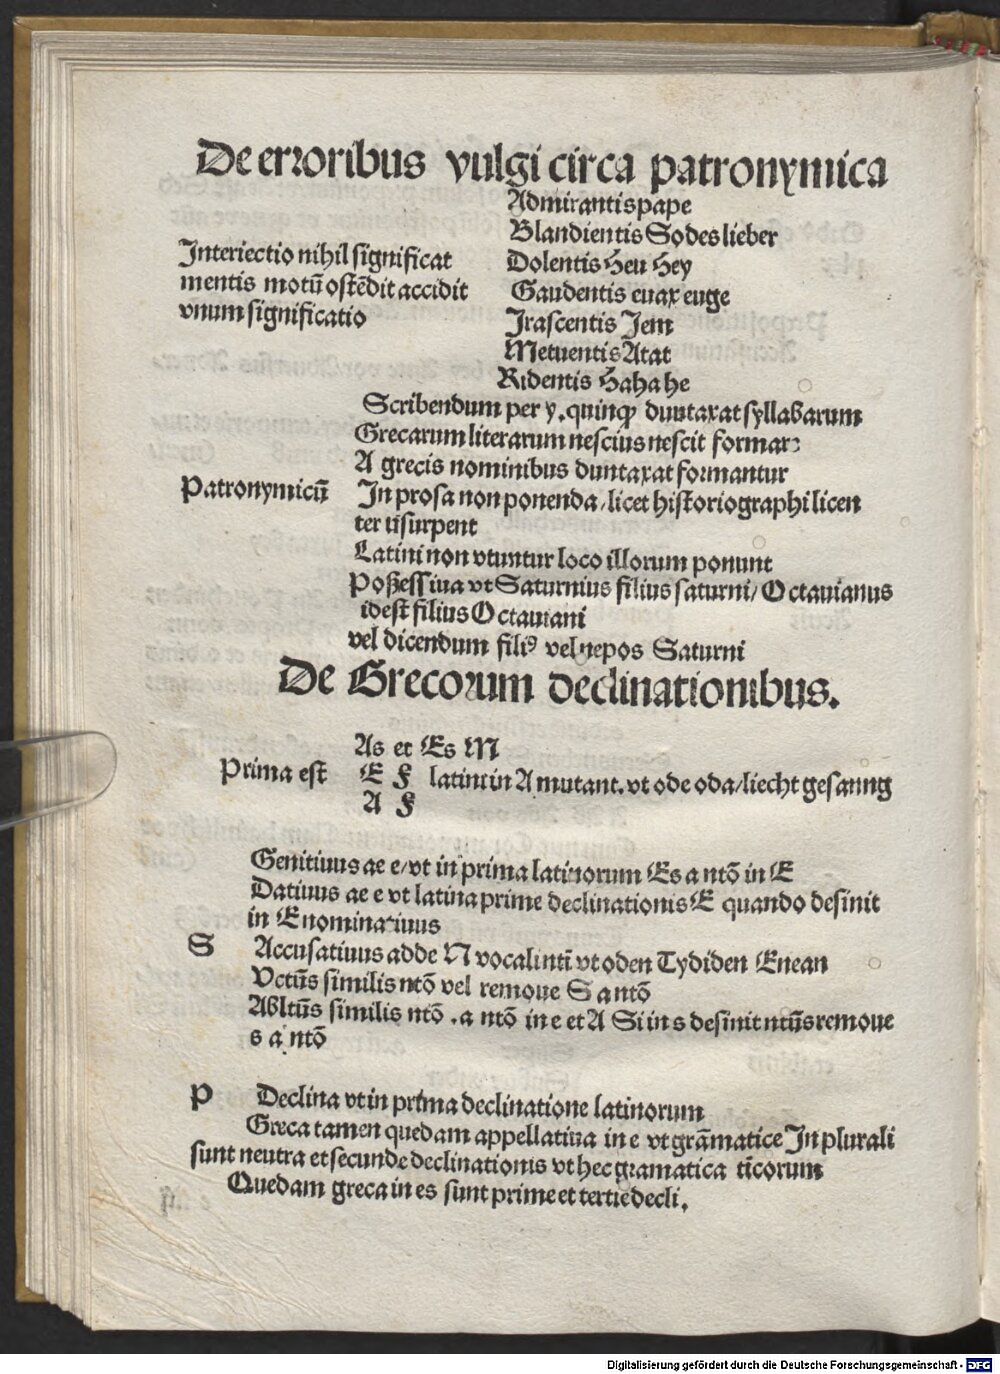 De erroribus vulgi circa patronymica
Admirantis pape
Blandientis Sodes lieber
Interiectio nihil significat
mentis motū ostēdit accidit
vnum significatio
Dolentis Heu Hey
Gaudentis euax euge
Irascentis Jem
Metuentis Atat
Ridentis Hahahe
Scribendum per y. quinqꝫ duntaxat syllabarum
Grecarum literarum nescius nescit formarꝫ
A grecis nominibus duntaxat formantur
Patronymicū
In prosa non ponenda/licet historiographi licen
ter usurpent
Latini non vtuntur loco illorum ponunt
Possessiua vt Saturnius filius saturni/Octauianus
idest filius Octauiani
vel dicendum filiꝰ vel nepos Saturni
De Grecorum declinationibus.
As et Es M
Prima est
E F latini in A mutant. vt ode oda/liecht gesanng
A F
Genitiuus ae e/vt in prima latinorum Es a ntō in E
Datiuus ae e vt latina prime declinationis E quando desinit
in E nominatiuus
S Accusatiuus adde N vocali ntī vt oden Tydiden Enean
Vctūs similis ntō vel remoue S a ntō
Abltūs similis ntō .a ntō in e et A Si in s desinit ntūs remoue
s a ntō
P Declina vt in prima declinatione latinorum
Greca tamen quedam appellatiua in e vt grāmatice In plurali
sunt neutra et secunde declinationis vt hec gramatica ticorum
Quedam greca in es sunt prime et tertie decli.
Digitalisierung gefördert durch die Deutsche Forschungsgemeinschaft - DFG